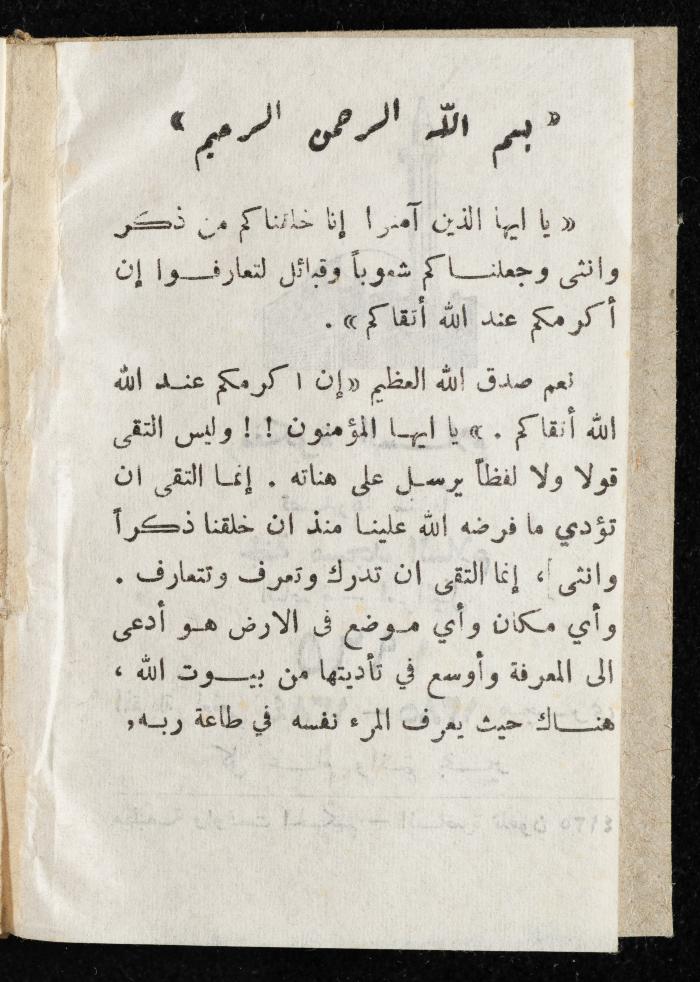 « بسم الله الرحمن الرحيم »
« يا ايها الذين آمنوا إنا خلقناكم من ذكر
وانثى وجعلناكم شعوباً وقبائل لتعارفوا إن
أكرمكم عند الله أتقاكم » .
نعم صدق الله العظيم «إن اكرمكم عند الله
الله أتقاكم . » يا ايها المؤمنون ! ! وليس التقى
قولا ولا لفظاً يرسل على هناته . إنما التقى ان
تؤدي ما فرضه الله علينا منذ ان خلقنا ذكراً
وانثى ، إنما التقى ان تدرك وتعرف وتتعارف .
وأي مكان وأي موضع فى الارض هو أدعى
الى المعرفة وأوسع في تأديتها من بيوت الله ،
هناك حيث يعرف المرء نفسه في طاعة ربه,